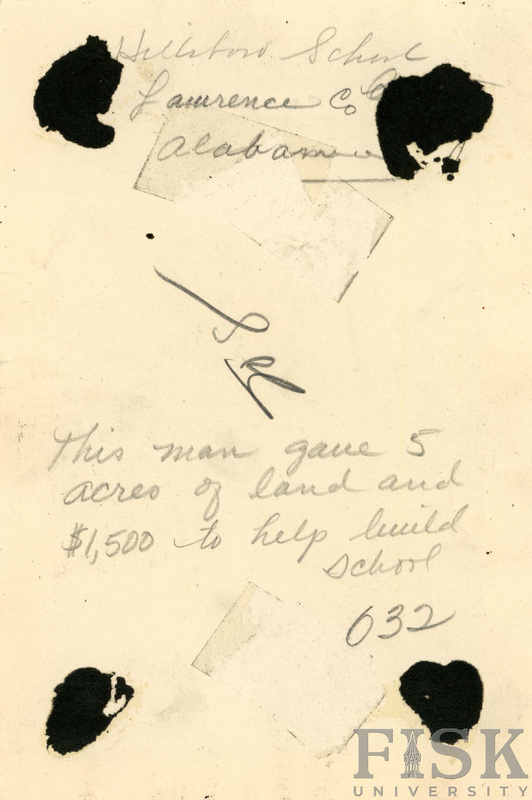 Hillsboro School
Lawrence Co
Alabama
This man gave 5
acres of land and
$1,500 to help build
school
632
FISK
UNIVERSITY